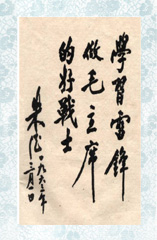 學習雷鋒
做毛主席
的好戰士
朱德
一九六三年
二月